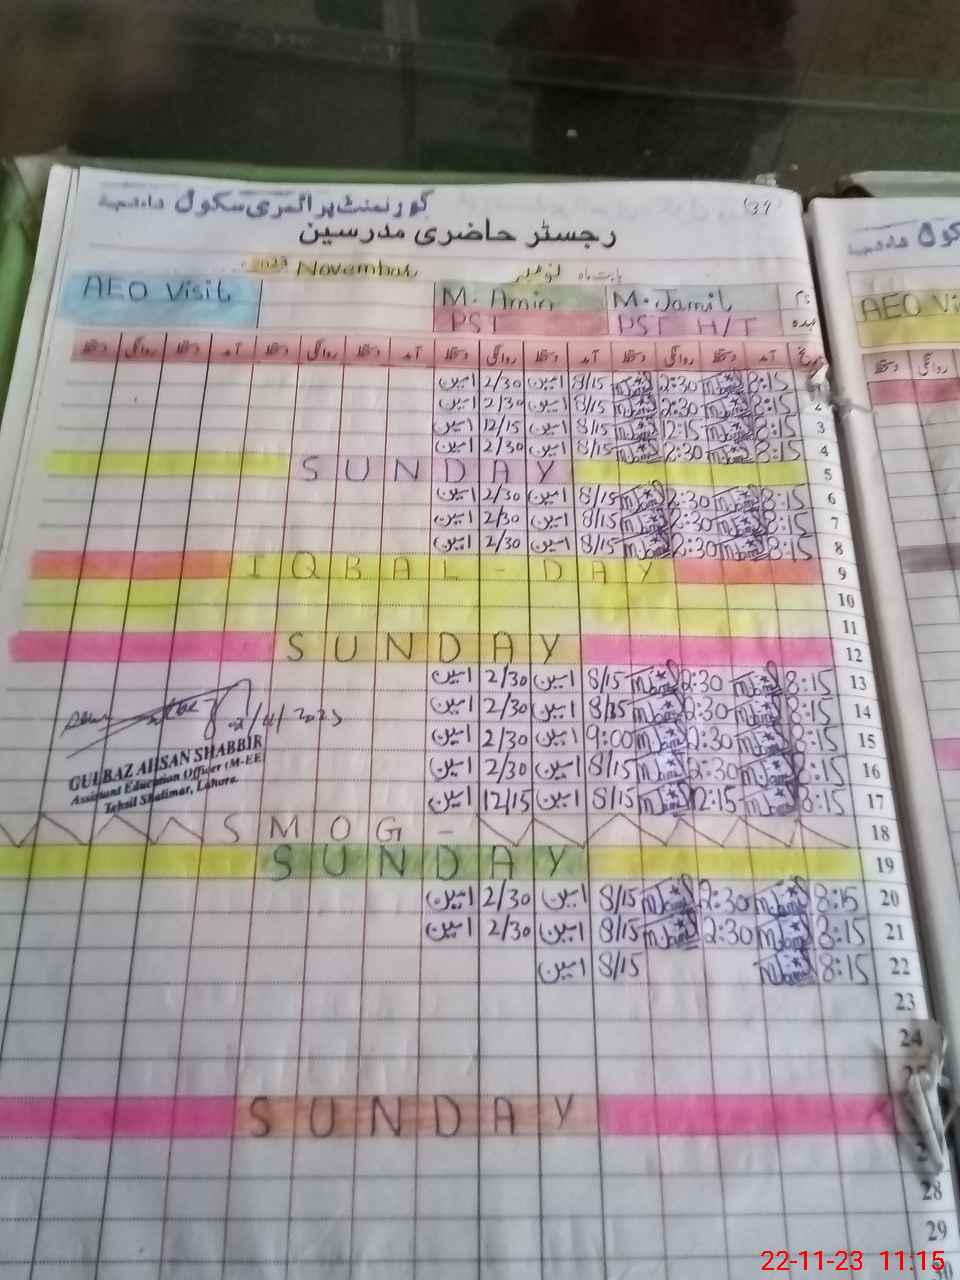 (39)
گورنمنٹ پرائمری سکول
رجسٹر حاضری مدرسین
بابت ماہ نومبر November 2023
نام M. Jamil M. Amin AEO Visit
عہدہ PST H/T PST
تاریخ آمد دستخط روانگی دستخط آمد دستخط روانگی دستخط آمد دستخط روانگی دستخط آمد دستخط روانگی دستخط
1 8:15 M.Jamil 2:30 M.Jamil 8/15 امین 2/30 امین
2 8:15 M.Jamil 2:30 M.Jamil 8/15 امین 2/30 امین
3 8:15 M.Jamil 12:15 M.Jamil 8/15 امین 12/15 امین
4 8:15 M.Jamil 2:30 M.Jamil 8/15 امین 2/30 امین
5 SUNDAY
6 8:15 M.Jamil 2:30 M.Jamil 8/15 امین 2/30 امین
7 8:15 M.Jamil 2:30 M.Jamil 8/15 امین 2/30 امین
8 8:15 M.Jamil 2:30 M.Jamil 8/15 امین 2/30 امین
9 IQBAL-DAY
10
11
12 SUNDAY
13 8:15 M.Jamil 2:30 M.Jamil 8/15 امین 2/30 امین
14 8:15 M.Jamil 2:30 M.Jamil 8/15 امین 2/30 امین
15 8:15 M.Jamil 2:30 M.Jamil 9:00 امین 2/30 امین
16 8:15 M.Jamil 2:30 M.Jamil 8/15 امین 2/30 امین
17 8:15 M.Jamil 12:15 M.Jamil 8/15 امین 12/15 امین
GULBAZ AHSAN SHABBIR
Assistant Education Officer (M-EE)
Tehsil Shalimar, Lahore.
18 SMOG -
19 SUNDAY
20 8:15 M.Jamil 2:30 M.Jamil 8/15 امین 2/30 امین
21 8:15 M.Jamil 2:30 M.Jamil 8/15 امین 2/30 امین
22 8:15 M.Jamil 8/15 امین
23
24
25
SUNDAY
28
29
30
AEO Vi
روانگی دستخط
22-11-23 11:15